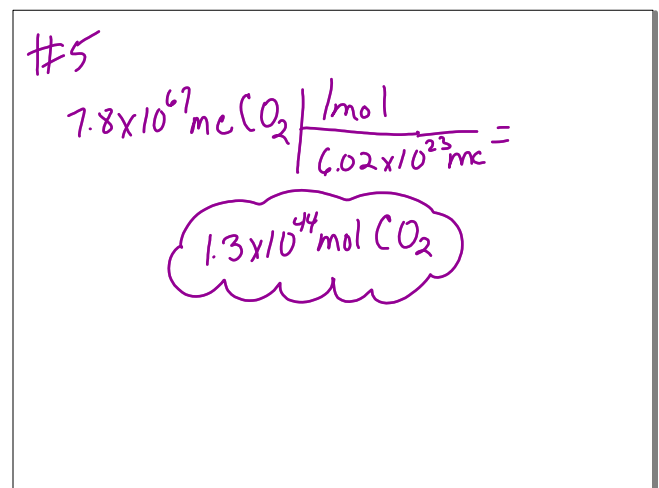 #5
7.8x10⁶⁷ mc CO₂ | 1mol
6.02x10²³ mc =
1.3x10⁴⁴ mol CO₂